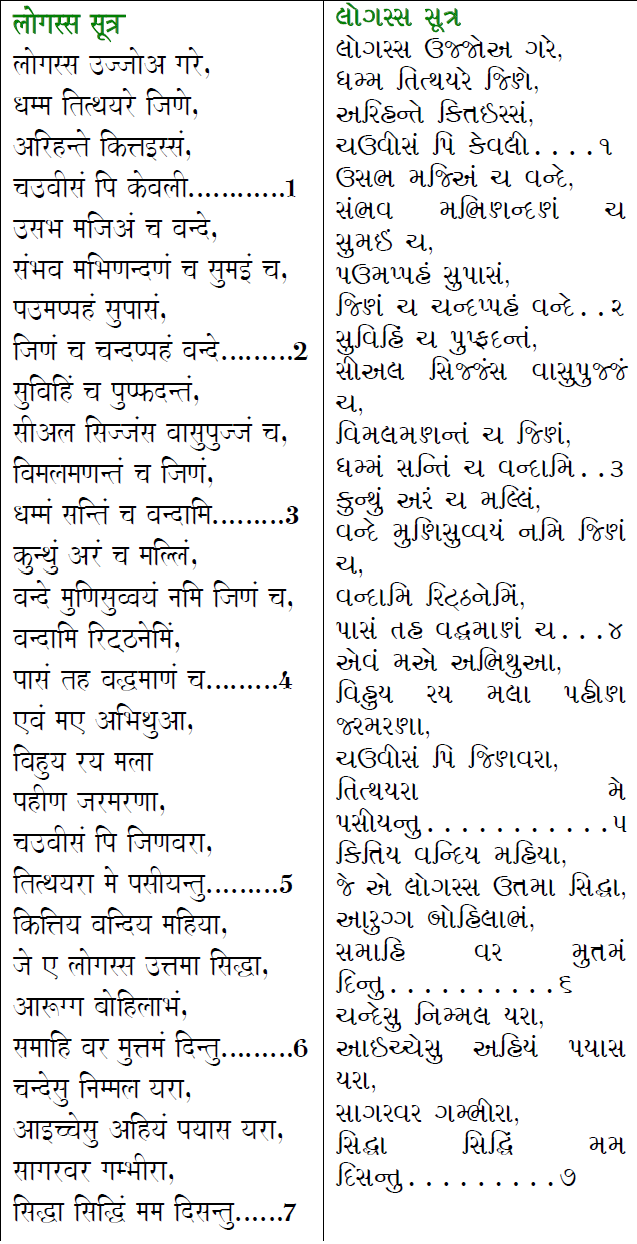 लोगस्स सूत्र
लोगस्स उज्जोअ गरे,
धम्म तित्थयरे जिणे,
अरिहन्ते कित्तइस्सं,
चउवीसं पि केवली............1
उसभ मजिअं च वन्दे,
संभव मभिणन्दणं च सुमइं च,
पउमप्पहं सुपासं,
जिणं च चन्दप्पहं वन्दे.........2
सुविहिं च पुप्फदन्तं,
सीअल सिज्जंस वासुपुज्जं च,
विमलमणन्तं च जिणं,
धम्मं सन्तिं च वन्दामि.........3
कुन्थुं अरं च मल्लिं,
वन्दे मुणिसुव्वयं नमि जिणं च,
वन्दामि रिट्ठनेमिं,
पासं तह वद्धमाणं च.........4
एवं मए अभिथुआ,
विहुय रय मला
पहीण जरमरणा,
चउवीसं पि जिणवरा,
तित्थयरा मे पसीयन्तु.........5
कित्तिय वन्दिय महिया,
जे ए लोगस्स उत्तमा सिद्धा,
आरूग्ग वोहिलाभं,
समाहि वर मुत्तमं दिन्तु.........6
चन्देसु निम्मल यरा,
आइच्चेसु अहियं पयास यरा,
सागरवर गम्भीरा,
सिद्धा सिद्धिं मम दिसन्तु......7
લોગસ્સ સૂત્ર
લોગસ્સ ઉજ્જોઅ ગરે,
ધમ્મ તિત્થયરે જિણે,
અરિહન્તે કિત્તઈસ્સં,
ચઉવીસં પિ કેવલી....૧
ઉસભ મજિઅં ચ વન્દે,
સંભવ મભિણન્દણં ચ
સુમઈં ચ,
પઉમપ્પહં સુપાસં,
જિણં ચ ચન્દપ્પહં વન્દે..૨
સુવિહિં ચ પુપ્ફદન્તં,
સીઅલ સિજ્જંસ વાસુપુજ્જં
ચ,
વિમલમણન્તં ચ જિણં,
ધમ્મં સન્તિં ચ વન્દામિ..૩
કુન્થું અરં ચ મલ્લિં,
વન્દે મુણિસુવ્વયં નમિ જિણં
ચ,
વન્દામિ રિટ્ઠનેમિં,
પાસં તહ વદ્ધમાણં ચ...૪
એવં મએ અભિથુઆ,
વિહુય રય મલા પહીણ
જરમરણા,
ચઉવીસં પિ જિણવરા,
તિત્થયરા મે
પસીયન્તુ...........૫
કિત્તિય વન્દિય મહિયા,
જે એ લોગસ્સ ઉત્તમા સિદ્ધા,
આરુગ્ગ બોહિલાભં,
સમાહિ વર મુત્તમં
દિન્તુ..........૬
ચન્દેસુ નિમ્મલ યરા,
આઈચ્ચેસુ અહિયં પયાસ
યરા,
સાગરવર ગમ્ભીરા,
સિદ્ધા સિદ્ધિં મમ
દિસન્તુ.........૭